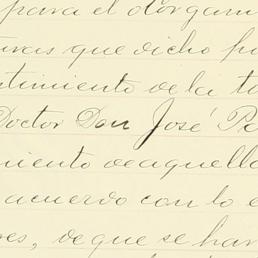 para el otorgam
uras que dicho po
timiento de la to
Doctor Don José Pa
miento de aquella
acuerdo con lo e
es, de que se har